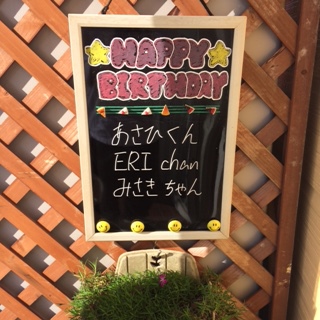 HAPPY
BIRTHDAY
あさひくん
ERI chan
みさきちゃん